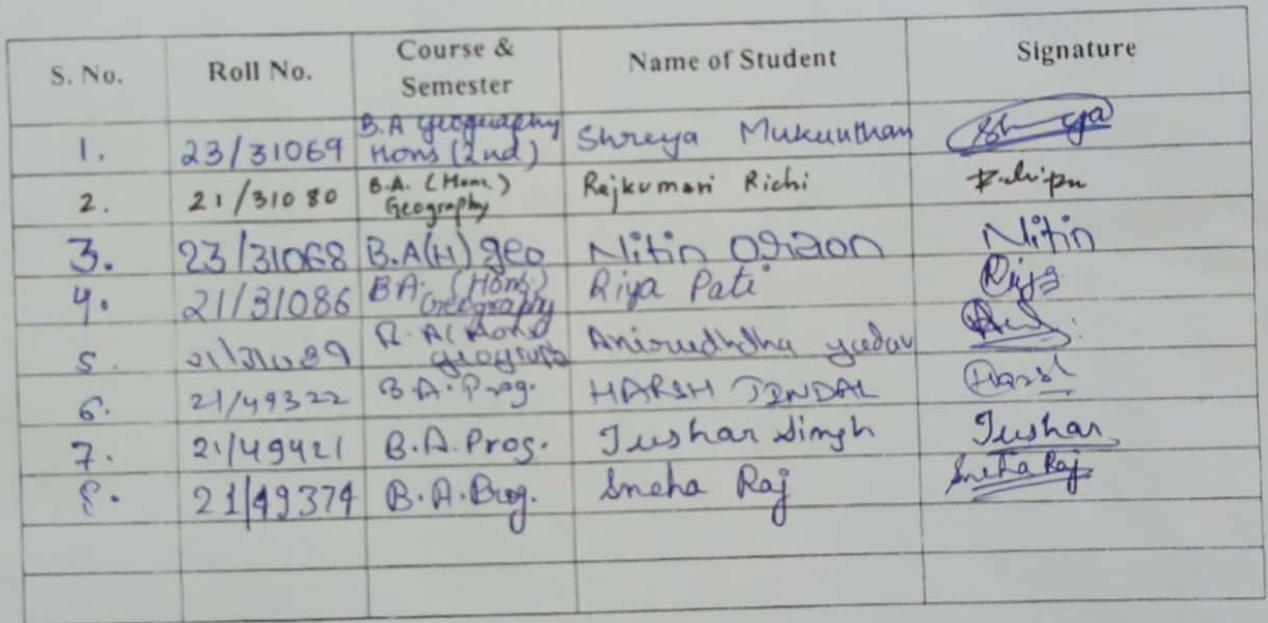 S. No. Roll No. Course & Semester Name of Student Signature
1. 23/31069 B.A Geography Hons (2nd) Shreya Mukunthan
2. 21/31080 B.A. (Hons.) Geography Rajkumari Richi
3. 23/31068 B.A(H) geo Nitin Oraon Nitin
4. 21/31086 BA. (Hons) Geography Riya Pati Riya
5. 21/31089 B.A(Hons) Anirudhdha yadav
6. 21/49322 B.A. Prog. HARSH JINDAL Harsh
7. 21/49421 B.A. Prog. Tushar Singh Tushar
8. 21/49374 B.A. Prog. Sneha Raj Sneha Raj